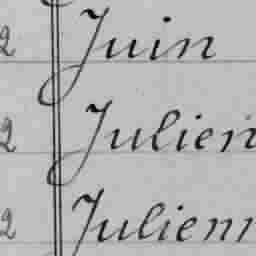 2 Juin
2 Julien
2 Julienn